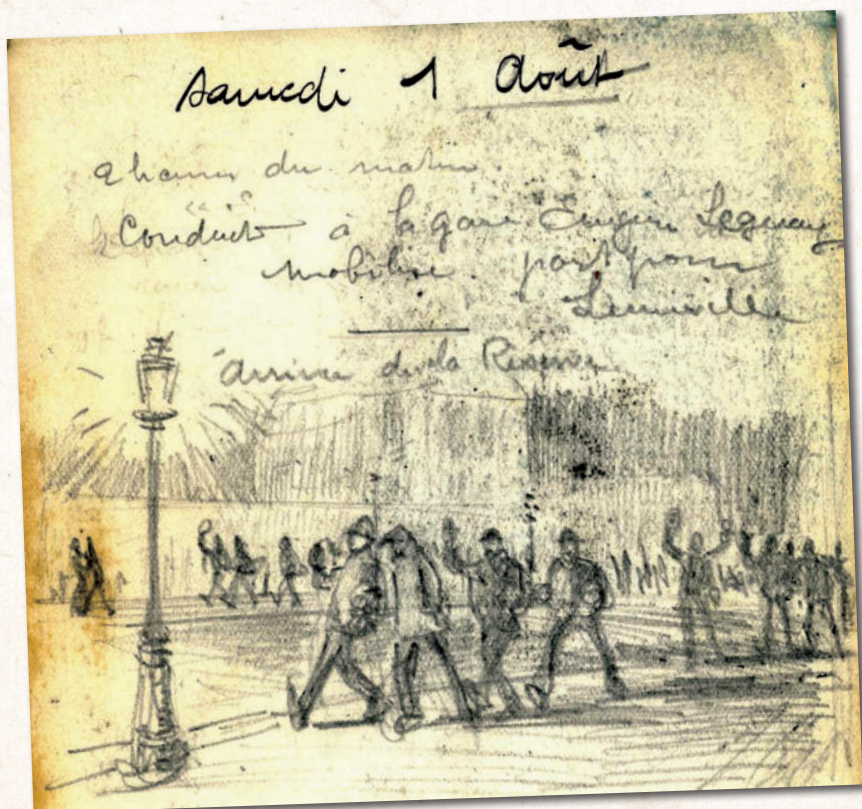 Samedi 1 Août
du matin.
Conduit à la gare Eugène Leguay
mobilisé. part pour
Lunéville
arrivée de la Réserve